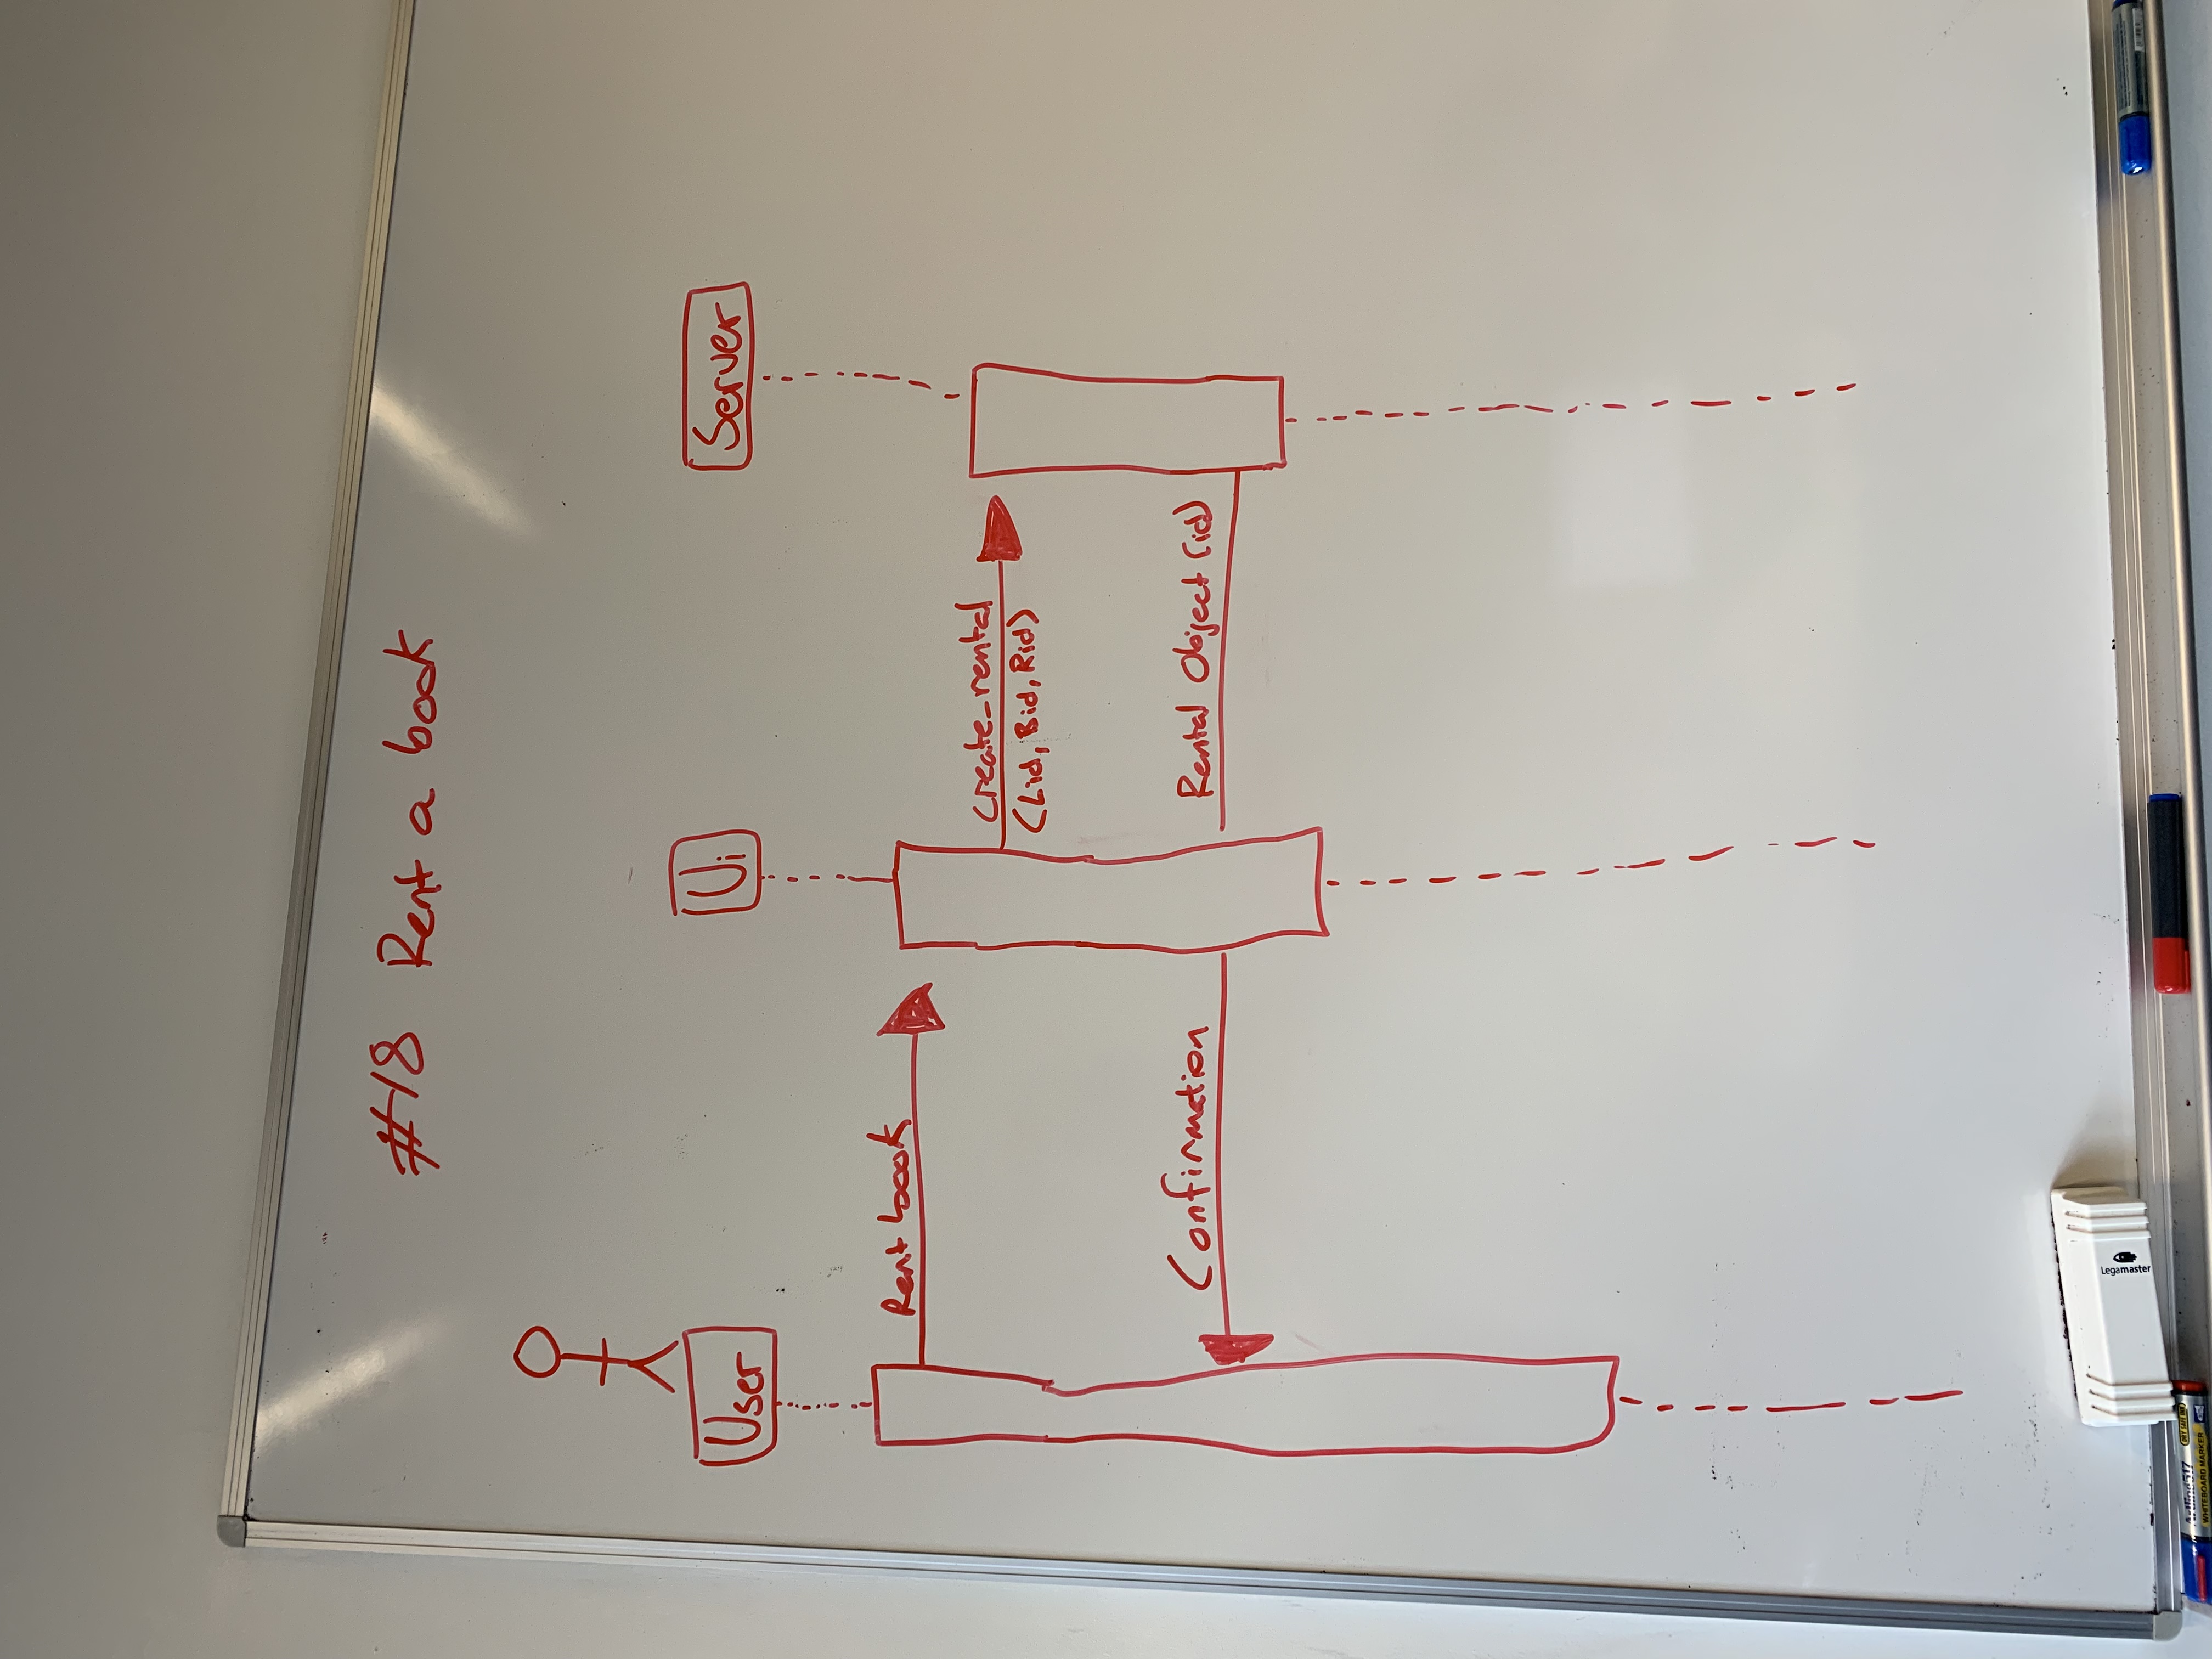 #18 Rent a book
User
Ui
Server
Rent book
create_rental
(Lid, Bid, Rid)
Confirmation
Rental Object (id)
Legamaster
Artline 517
DRY SAFE INK
WHITEBOARD MARKER